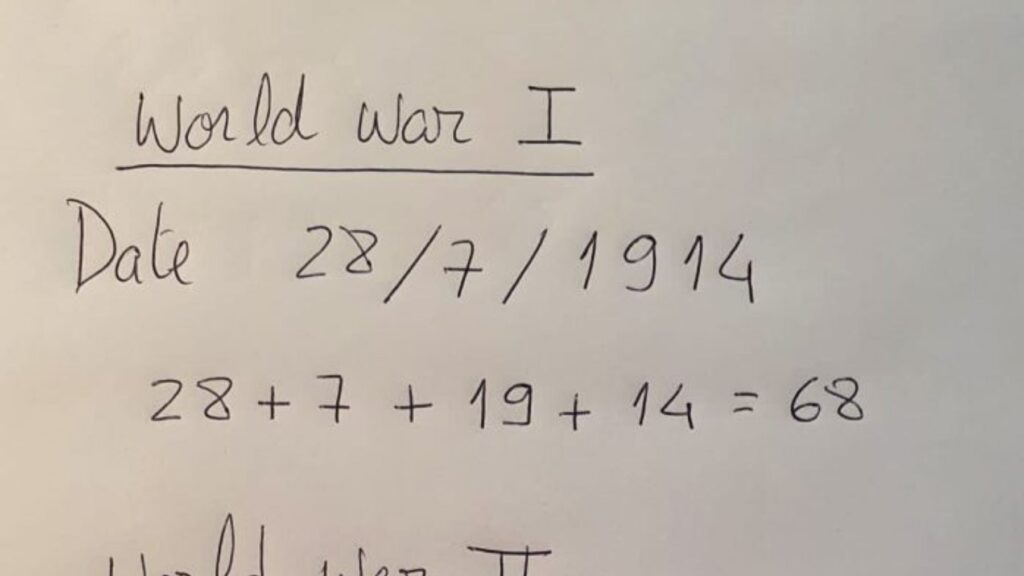 World War I
Date 28/7/1914
28 + 7 + 19 + 14 = 68
World War II